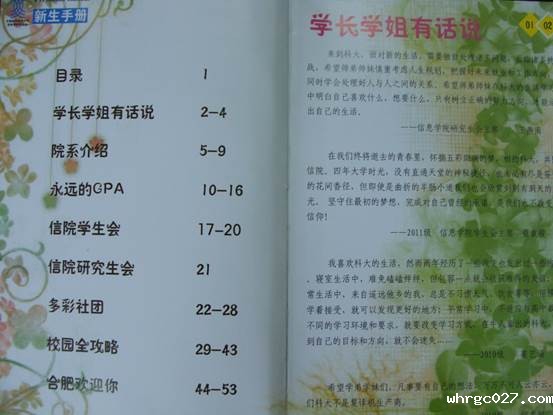 新生手册
目录 1
学长学姐有话说 2-4
院系介绍 5-9
永远的GPA 10-16
信院学生会 17-20
信院研究生会 21
多彩社团 22-28
校园全攻略 29-43
合肥欢迎你 44-53
学长学姐有话说
01 02
来到科大，面对新的生活，需要
战，希望师弟师妹慎重考虑人生规划，把握好未来
同时学会处理好人与人之间的关系，希望师弟师妹
中明白自己喜欢什么，想要什么，只有树立正确的
出自己的生活。
——信息学院研究生会主席
在我们终将逝去的青春里，怀揣五彩斑斓的梦，相约科大，
信院，四年大学时光，没有直通天堂的神秘
的花间香径，但即使是曲折的羊肠小道我们也会欣赏到别有洞天的
光。坚守住最初的梦想，完成对自己曾经的承诺，是我们
信仰！
——2011级 信息学院学生会主席
我喜欢科大的生活，然而两年经历了
，寝室生活中，难免磕磕绊绊，但包容一点就
常生活中，来自遥远他乡的我，总是不习惯天气、饮食
学着接受，就可以发现更好的地方；平常学习中，
不同的学习环境和要求，就要改变学习方式，在
到自己的目标和方向，就不会迷失……
——2010级
希望学弟学妹们，凡事要有自己的想法，
们科大不是复读机生产商。
whrgc027.com